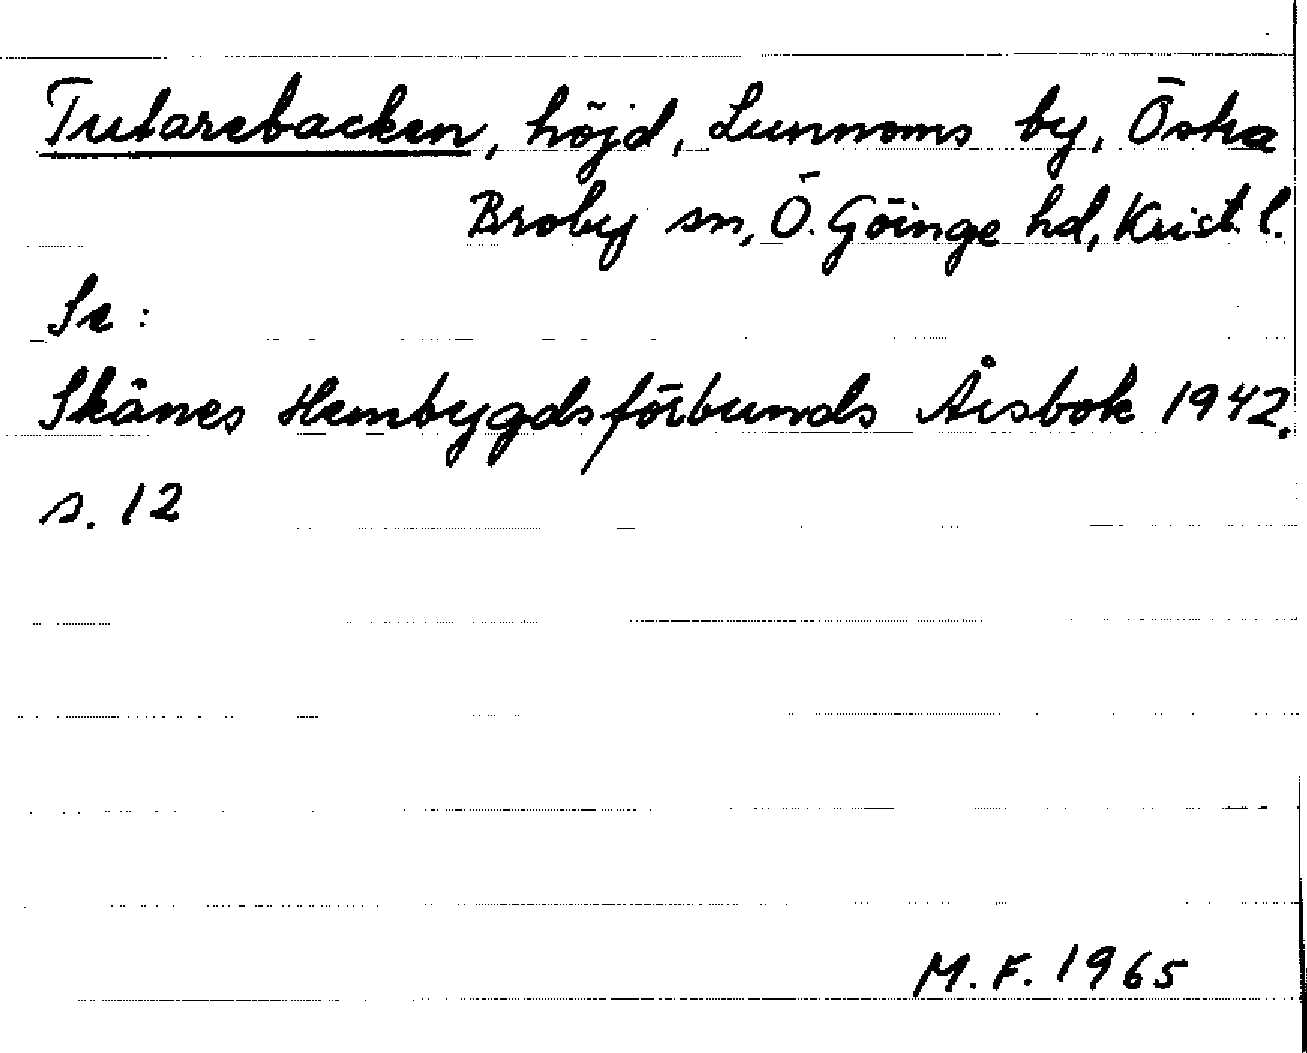 Tutarebacken, höjd, Lunnoms by, Östra
Broby sn, Ö. Göinge hd, Krist. l.
Se:
Skånes Hembygdsförbunds Årsbok 1942.
s. 12
M.F. 1965